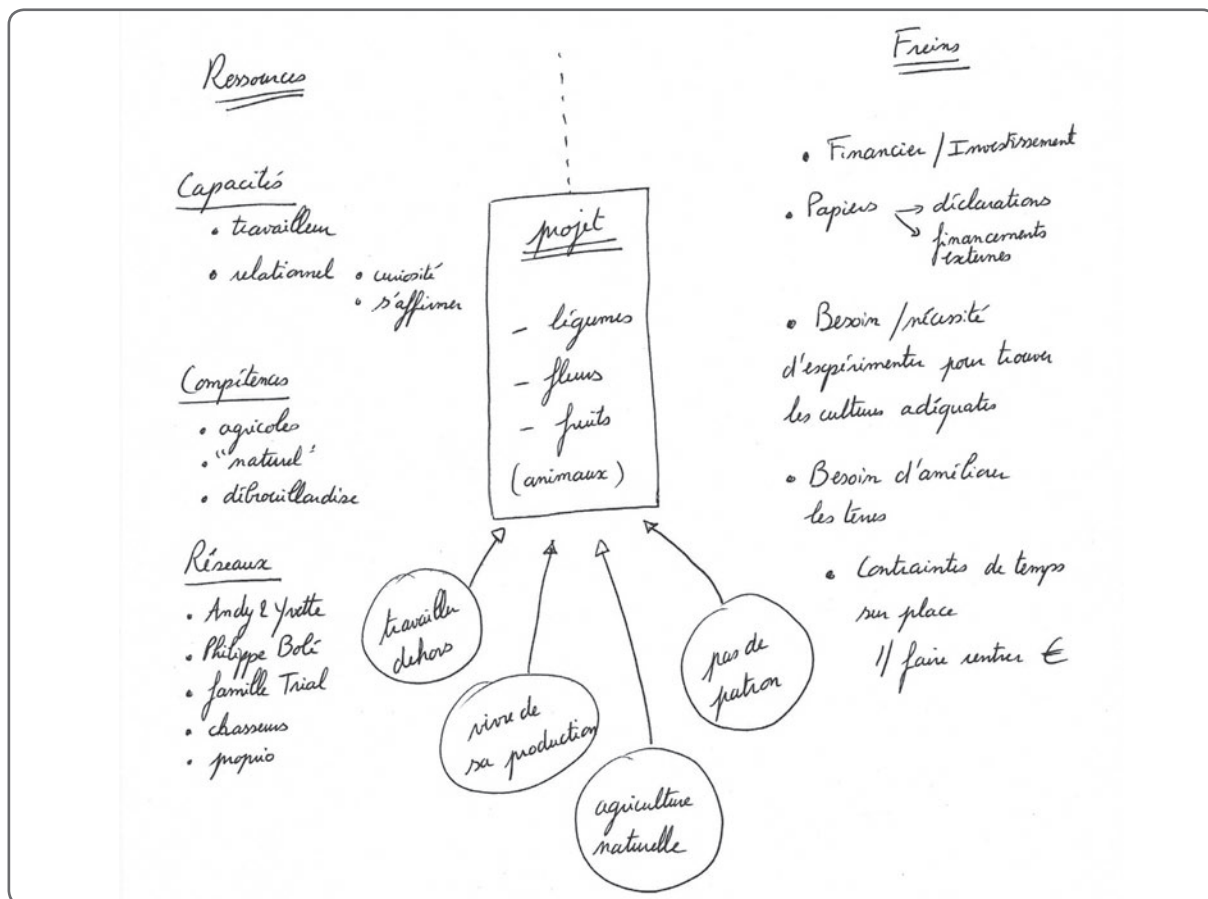 Ressources
Capacités
• travailleur
• relationnel
• curiosité
• s'affirmer
Compétences
• agricoles
• "naturel"
• débrouillardise
Réseaux
• Andy & Yvette
• Philippe Bolé
• famille Trial
• chasseurs
• proprio
projet
- légumes
- fleurs
- fruits
(animaux)
travailler
dehors
vivre de
sa production
agriculture
naturelle
pas de
patron
Freins
• Financier / Investissement
• Papiers → déclarations
→ financements
externes
• Besoin / nécessité
d'expérimenter pour trouver
les cultures adéquates
• Besoin d'améliorer
les terres
• Contraintes de temps
sur place
// faire rentrer €